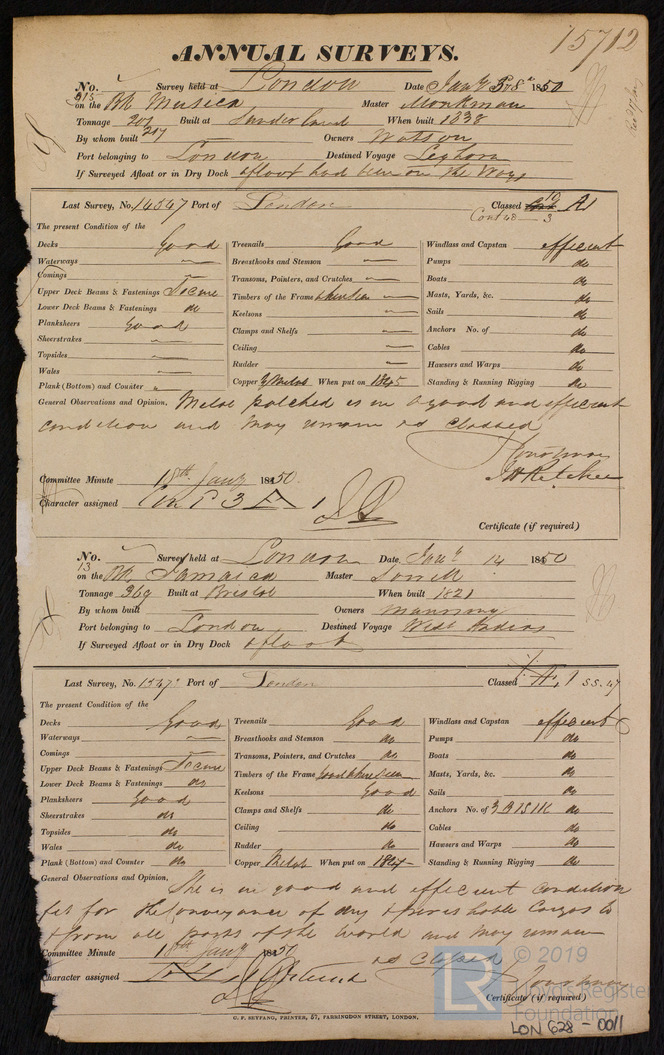 15712
ANNUAL SURVEYS.
No. 315 Survey held at London Date Jany 5 & 8th 1850
on the Bk Musica Master Monkman
Tonnage 201 217 Built at Sunderland When built 1838
By whom built Owners Watson
Port belonging to London Destined Voyage Leghorn
If Surveyed Afloat or in Dry Dock afloat had been on the Ways
Last Survey, No. 14547 Port of London Classed 12 A1
Cont 48 3
The present Condition of the
Decks Good Treenails Good Windlass and Capstan efficient
Waterways Breasthooks and Stemson Pumps do
Comings Transoms, Pointers, and Crutches Boats do
Upper Deck Beams & Fastenings Secure Timbers of the Frame when seen Masts, Yards, &c. do
Lower Deck Beams & Fastenings do Keelsons Sails do
Planksheers Good Clamps and Shelfs Anchors No. of do
Sheerstrakes Ceiling Cables do
Topsides Rudder Hawsers and Warps do
Wales Copper Y Metal When put on 1845 Standing & Running Rigging do
Plank (Bottom) and Counter "
General Observations and Opinion, Metal patched is in a good and efficient
condition and may remain as Classed
Committee Minute 18th Jany 1850.
Character assigned 3 A 1
Certificate (if required)
No. 13 Survey held at London Date, Jany 14 1850
on the Bk Jamaica Master
Tonnage 369 Built at Bristol When built 1821
By whom built Owners Manning
Port belonging to London Destined Voyage West Indies
If Surveyed Afloat or in Dry Dock afloat
Last Survey, No. Port of London Classed Æ 1 S.S. 47
The present Condition of the
Decks Good Treenails Good Windlass and Capstan efficient
Waterways Breasthooks and Stemson do Pumps do
Comings Transoms, Pointers, and Crutches do Boats do
Upper Deck Beams & Fastenings Secure Timbers of the Frame Good when seen Masts, Yards, &c. do
Lower Deck Beams & Fastenings do Keelsons Good Sails do
Planksheers Good Clamps and Shelfs do Anchors No. of 3 B 1 S 1 K do
Sheerstrakes do Ceiling do Cables do
Topsides do Rudder do Hawsers and Warps do
Wales do Copper Metal When put on 1847 Standing & Running Rigging do
Plank (Bottom) and Counter do
General Observations and Opinion, She is in good and efficient condition
fit for the Conveyance of dry & perishable Cargos to
& from all parts of the World and may remain
as Classed
Committee Minute 18th Jany 1850
Character assigned
Certificate (if required)
C. F. SEYFANG, PRINTER, 57, FARRINGDON STREET, LONDON.
© 2019
LR Lloyd's Register
Foundation
LON 628-0011